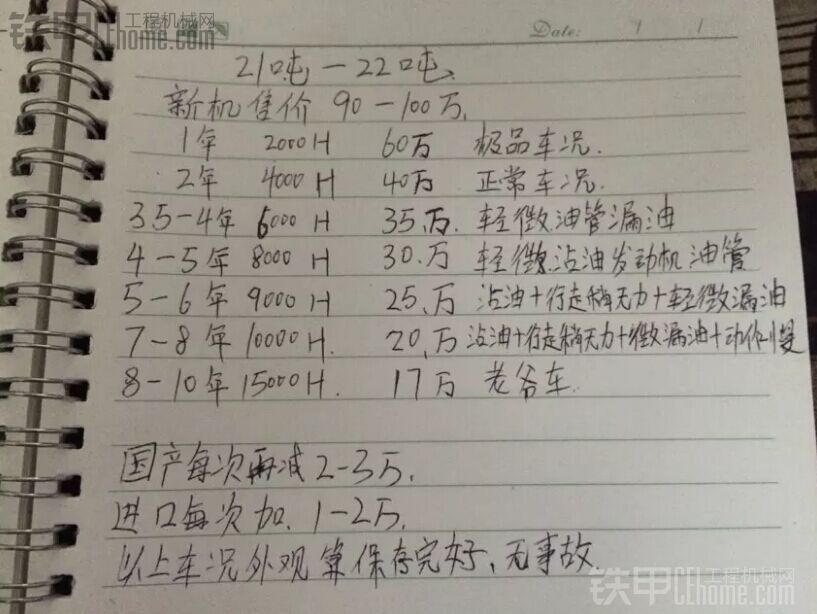 铁甲 工程机械网
CEhome.com
Date:
21吨—22吨
新机售价 90—100万.
1年 2000H 60万 极品车况.
2年 4000H 40万 正常车况.
3.5—4年 6000H 35.万. 轻微油管漏油
4—5年 8000H 30.万 轻微沾油发动机油管
5—6年 9000H 25.万 沾油+行走稍无力+轻微漏油
7—8年 10000H. 20.万 沾油+行走稍无力+微漏油+动作慢
8—10年 15000H. 17万 老爷车.
国产每次再减2-3万.
进口每次加.1-2万.
以上车况外观算保存完好、无事故.
铁甲 工程机械网
CEhome.com